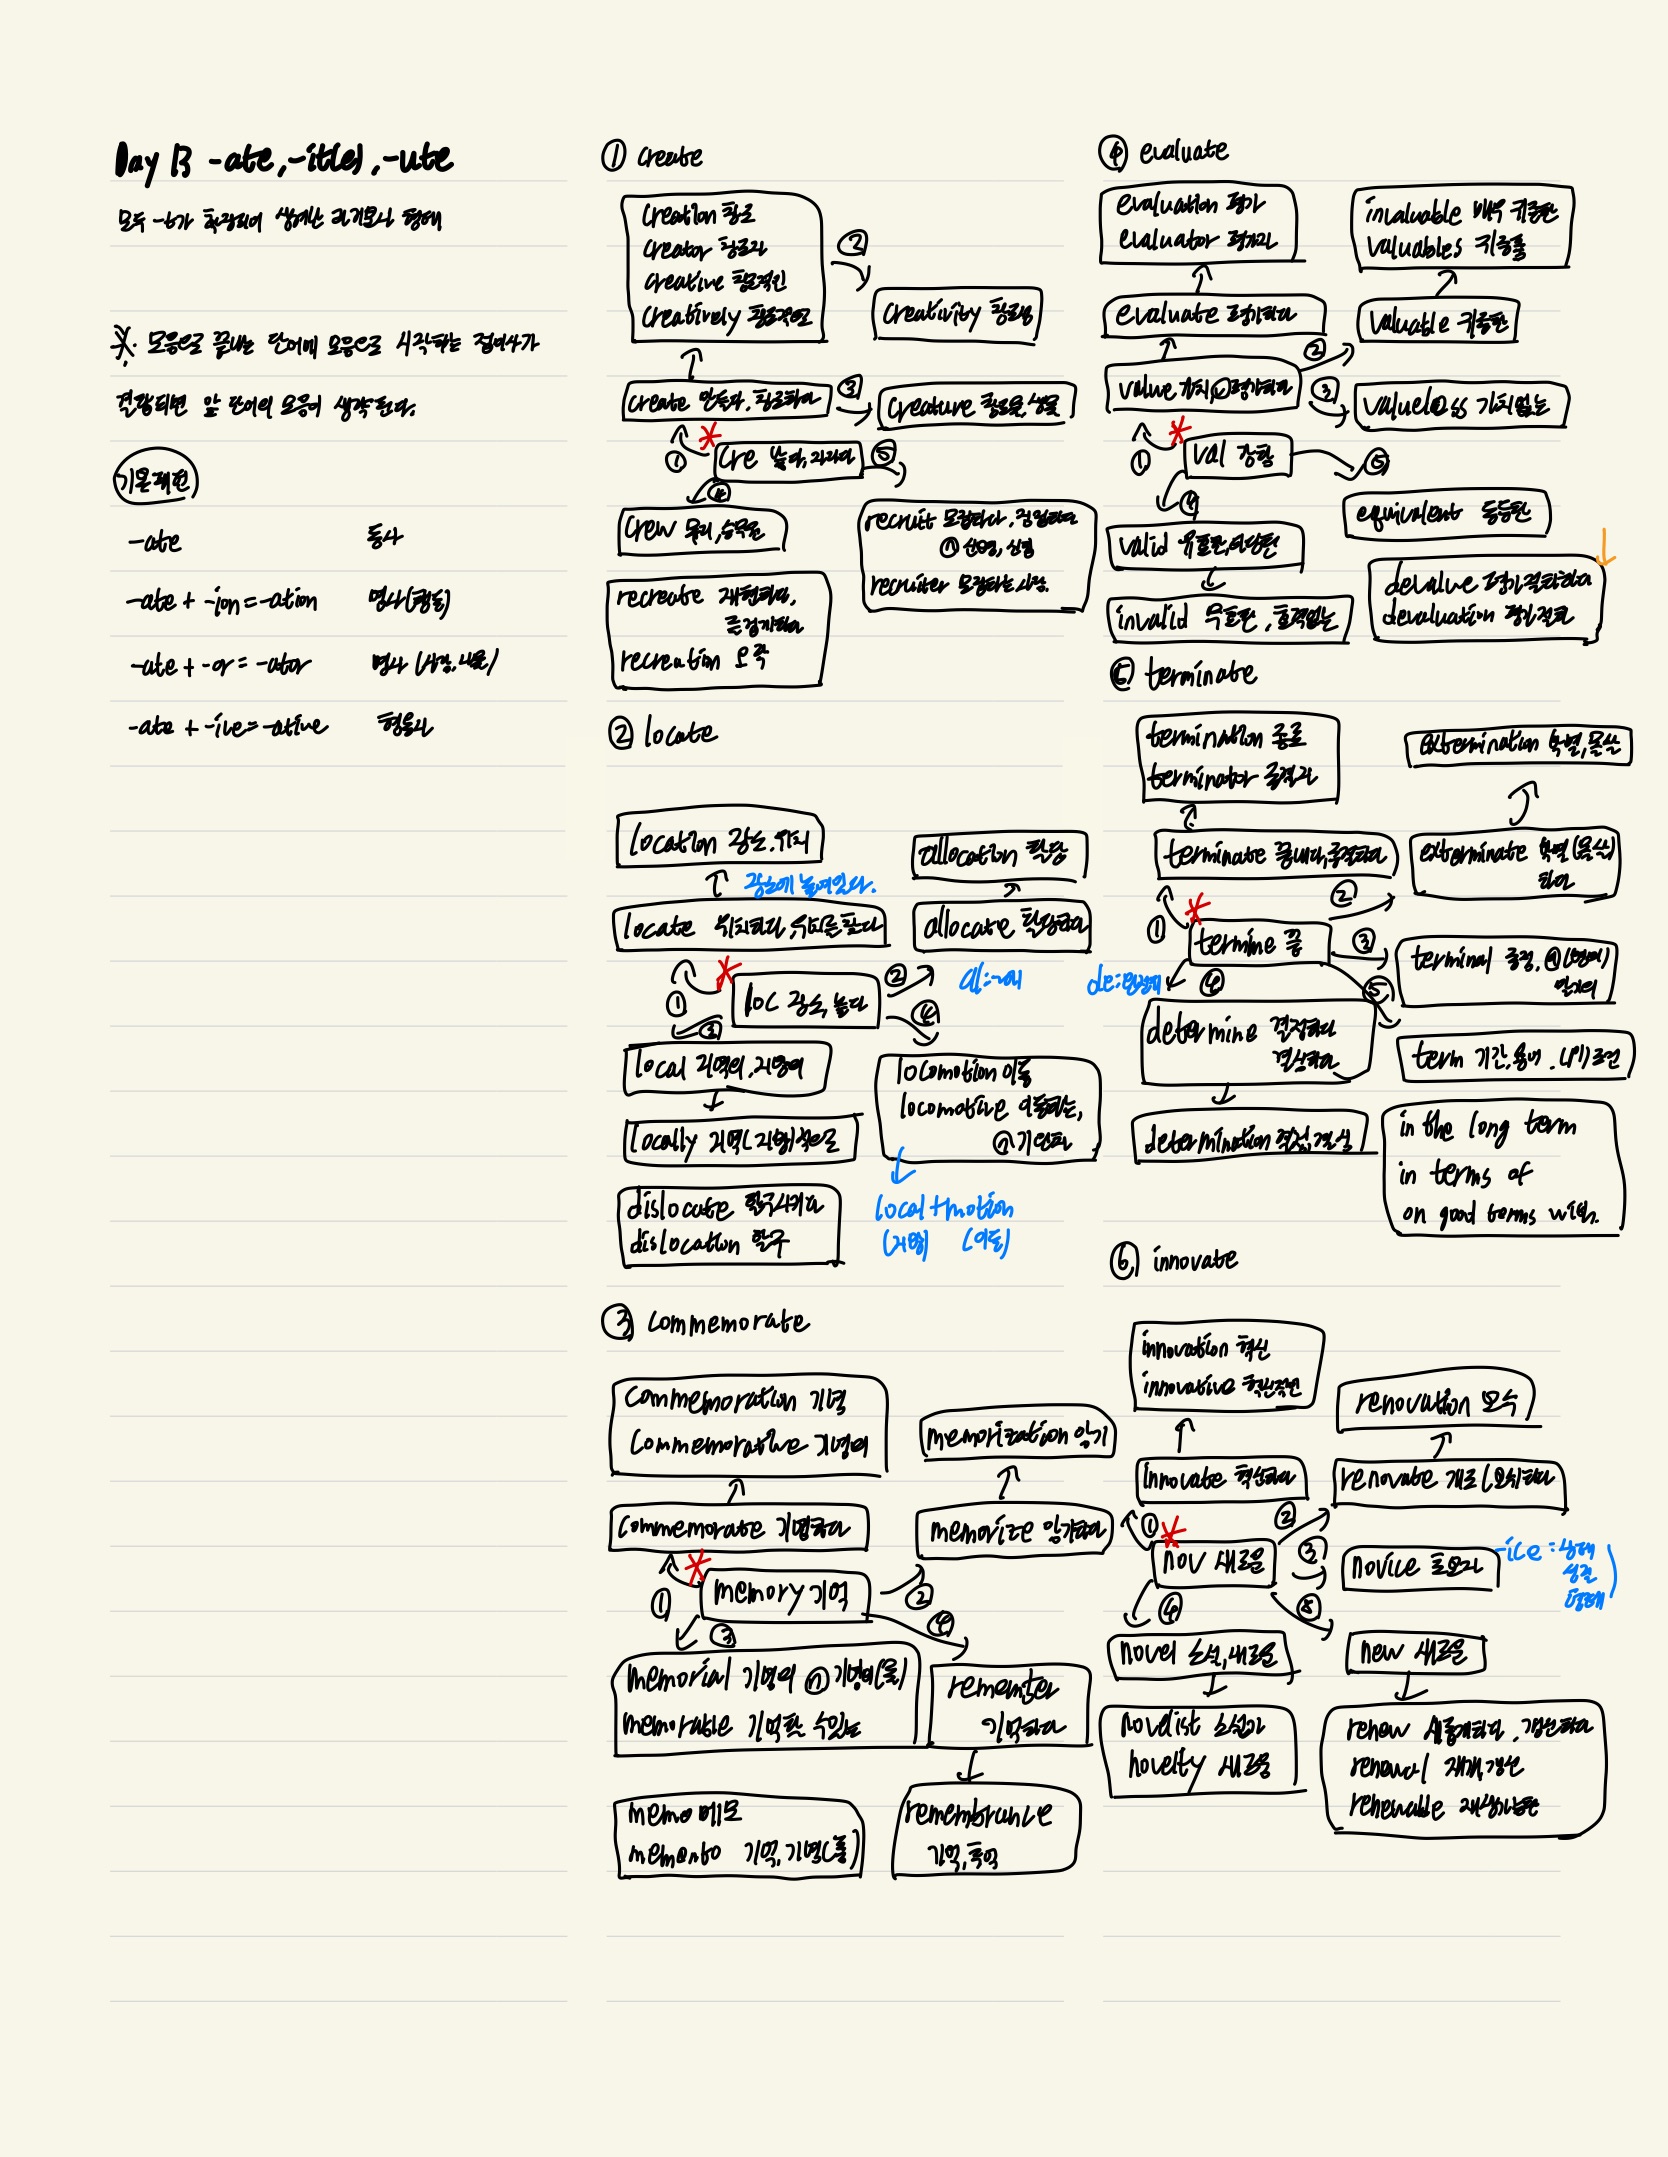 Day 13 -ate, -it(e), -ute
모두 -t가 확장되어 생겨난 과거분사 형태
※. 모음으로 끝나는 단어에 모음으로 시작하는 접미사가
결합되면 앞 단어의 모음이 생략된다.
기본패턴
-ate 동사
-ate + -ion = -ation 명사(행동)
-ate + -or = -ator 명사(사람, 사물)
-ate + -ive = -ative 형용사
① create
creation 창조
creator 창조자
creative 창조적인
creatively 창조적으로
②
creativity 창조성
create 만들다, 창조하다
③
creature 창조물, 생물
①
cre 낳다, 자라다
⑤
④
crew 무리, 승무원
recruit 모집하다, 징집하다
ⓝ 신병, 신참
recruiter 모집하는 사람.
recreate 재현하다,
즐겁게하다
recreation 오락
② locate
location 장소, 위치
allocation 할당
장소에 놓여있다.
locate 위치하다, 위치를 찾다
allocate 할당하다
al:~에
①
loc 장소, 놓다
②
④
③
local 지역의, 지방의
locally 지역(지방)적으로
locomotion 이동
locomotive 이동하는,
ⓝ 기관차
dislocate 탈구시키다
dislocation 탈구
local+motion
(지방) (이동)
③ commemorate
commemoration 기념
commemorative 기념의
memorization 암기
commemorate 기념하다
memorize 암기하다
①
memory 기억
②
③
④
memorial 기념의 ⓝ 기념비(물)
memorable 기억할 수있는
remember
기억하다
memo 메모
memento 기억, 기념(물)
remembrance
기억, 추억
④ evaluate
evaluation 평가
evaluator 평가자
invaluable 매우 귀중한
valuables 귀중품
evaluate 평가하다
valuable 귀중한
value 가치, ⓥ평가하다
②
③
valueless 가치없는
①
val 강함
⑤
④
equivalent 동등한
valid 유효한, 타당한
devalue 평가절하하다
devaluation 평가절하
invalid 무효한, 효력없는
⑤ terminate
termination 종료
terminator 종결자
extermination 박멸, 몰살
terminate 끝내다, 종결하다
exterminate 박멸(몰살)
하다
①
termine 끝
②
③
④
⑤
de:완전히
terminal 종점, ⓐ(병이)
말기의
determine 결정하다
결심하다
term 기간, 용어, (pl)조건
determination 결정, 결심
in the long term
in terms of
on good terms with.
⑥ innovate
innovation 혁신
innovative 혁신적인
renovation 보수
innovate 혁신하다
renovate 개조(보수)하다
①
nov 새로운
②
③
④
⑤
novice 초보자
-ice = 상태
성질
형태
novel 소설, 새로운
new 새로운
novelist 소설가
novelty 새로움
renew 새롭게하다, 갱신하다
renewal 재개, 갱신
renewable 재생가능한